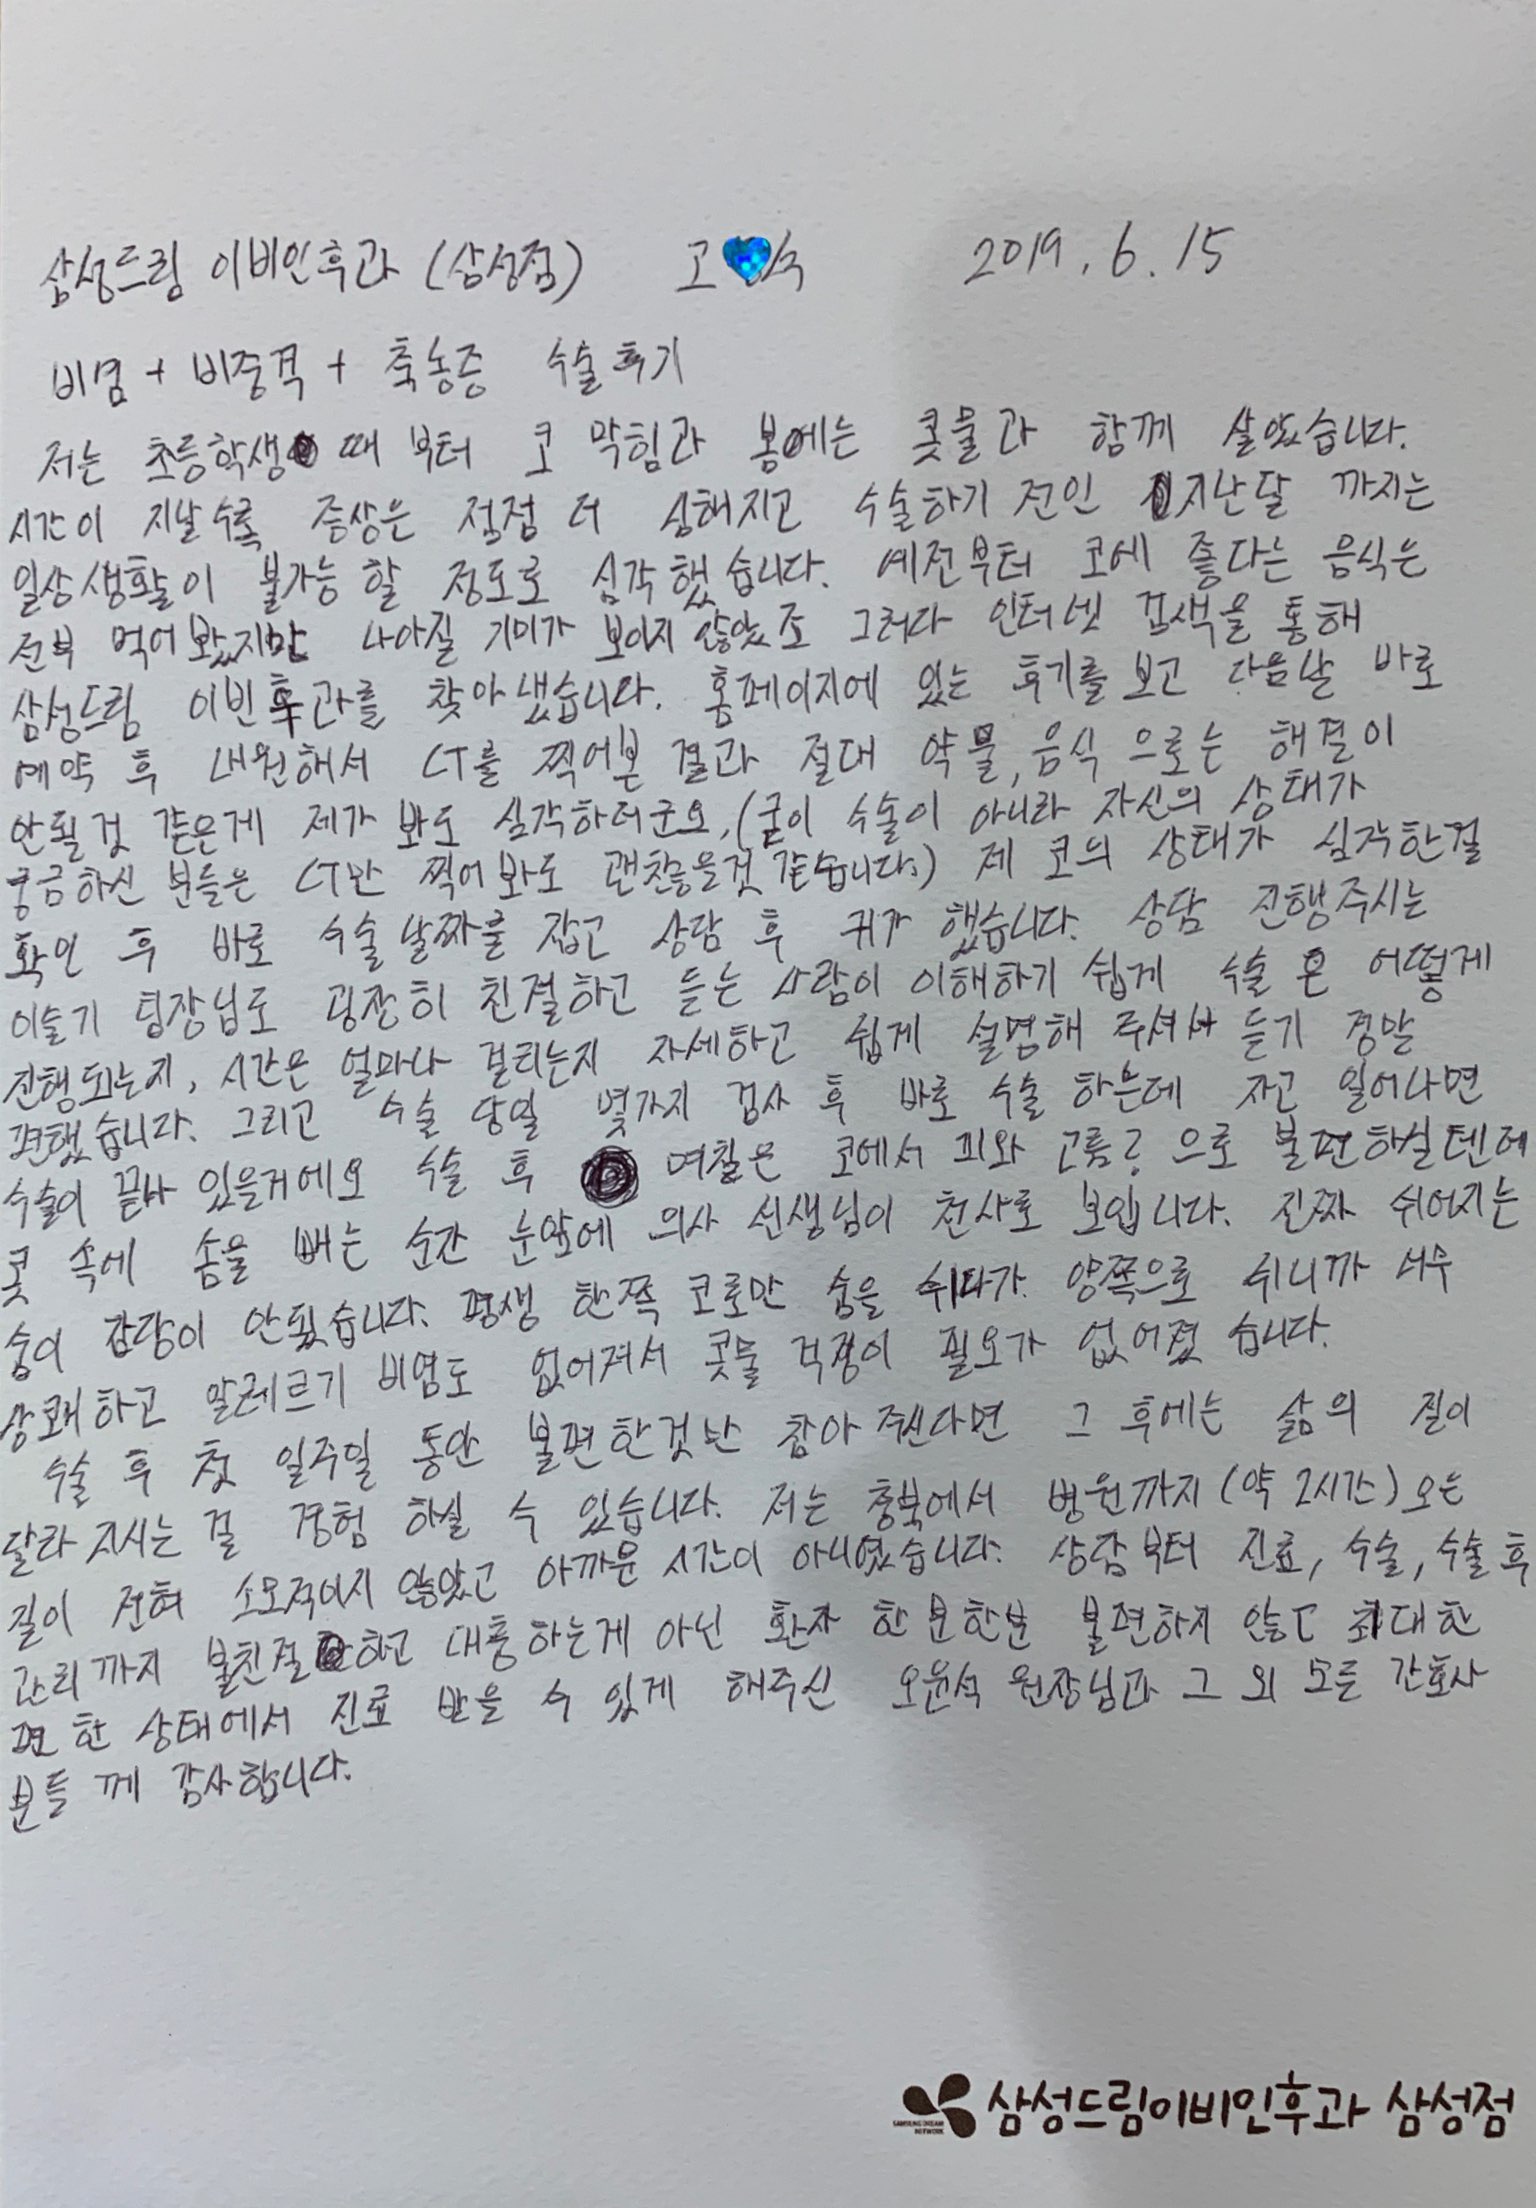 삼성드림 이비인후과 (삼성점) 고 2019. 6. 15
비염 + 비중격 + 축농증 수술후기
저는 초등학생 때 부터 코 막힘과 봄에는 콧물과 함께 살았습니다.
시간이 지날수록 증상은 점점 더 심해지고 수술하기 전인 지난달 까지는
일상생활이 불가능 할 정도로 심각했습니다. 예전부터 코에 좋다는 음식은
전부 먹어봤지만 나아질 기미가 보이지 않았죠 그러다 인터넷 검색을 통해
삼성드림 이빈후과를 찾아냈습니다. 홈페이지에 있는 후기를 보고 다음날 바로
예약 후 내원해서 CT를 찍어본 결과 절대 약물, 음식 으로는 해결이
안될것 같은게 제가 봐도 심각하더군요, (굳이 수술이 아니라 자신의 상태가
궁금하신 분들은 CT만 찍어 봐도 괜찮을것 같습니다.) 제 코의 상태가 심각한걸
확인 후 바로 수술 날짜를 잡고 상담 후 귀가 했습니다. 상담 진행주시는
이슬기 팀장님도 굉장히 친절하고 듣는 사람이 이해하기 쉽게 수술은 어떻게
진행되는지, 시간은 얼마나 걸리는지 자세하고 쉽게 설명해 주셔서 듣기 정말
편했습니다. 그리고 수술 당일 몇가지 검사 후 바로 수술 하는데 자고 일어나면
수술이 끝나 있을거에요 수술 후 며칠은 코에서 피와 고름? 으로 불편하실텐데
콧 속에 솜을 빼는 순간 눈앞에 의사 선생님이 천사로 보입니다. 진짜 쉬어지는
숨이 감당이 안됬습니다. 평생 한쪽 코로만 숨을 쉬다가 양쪽으로 쉬니까 너무
상쾌하고 알레르기 비염도 없어져서 콧물 걱정이 필요가 없어졌습니다.
수술 후 첫 일주일 동안 불편한것만 참아 주신다면 그 후에는 삶의 질이
달라 지시는 걸 경험 하실 수 있습니다. 저는 충북에서 병원까지 (약 2시간) 오는
길이 전혀 소모적이지 않았고 아까운 시간이 아니였습니다. 상담부터 진료, 수술, 수술 후
관리까지 불친절하고 대충하는게 아닌 환자 한분한분 불편하지 않고 최대한
편한 상태에서 진료 받을 수 있게 해주신 오윤석 원장님과 그 외 모든 간호사
분들 께 감사합니다.
SAMSUNG DREAM NETWORK 삼성드림이비인후과 삼성점